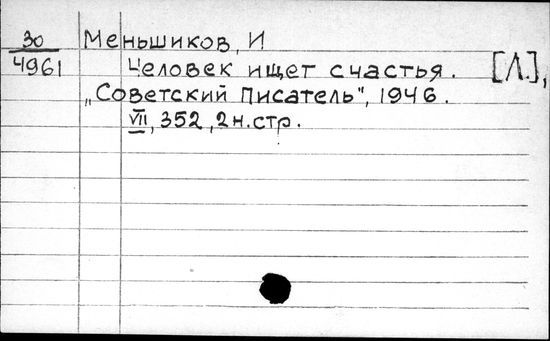 30 Меньшиков, И
4961 Человек ищет счастья. [Л.],
„Советский Писатель", 1946.
VII, 352, 2 н. стр.